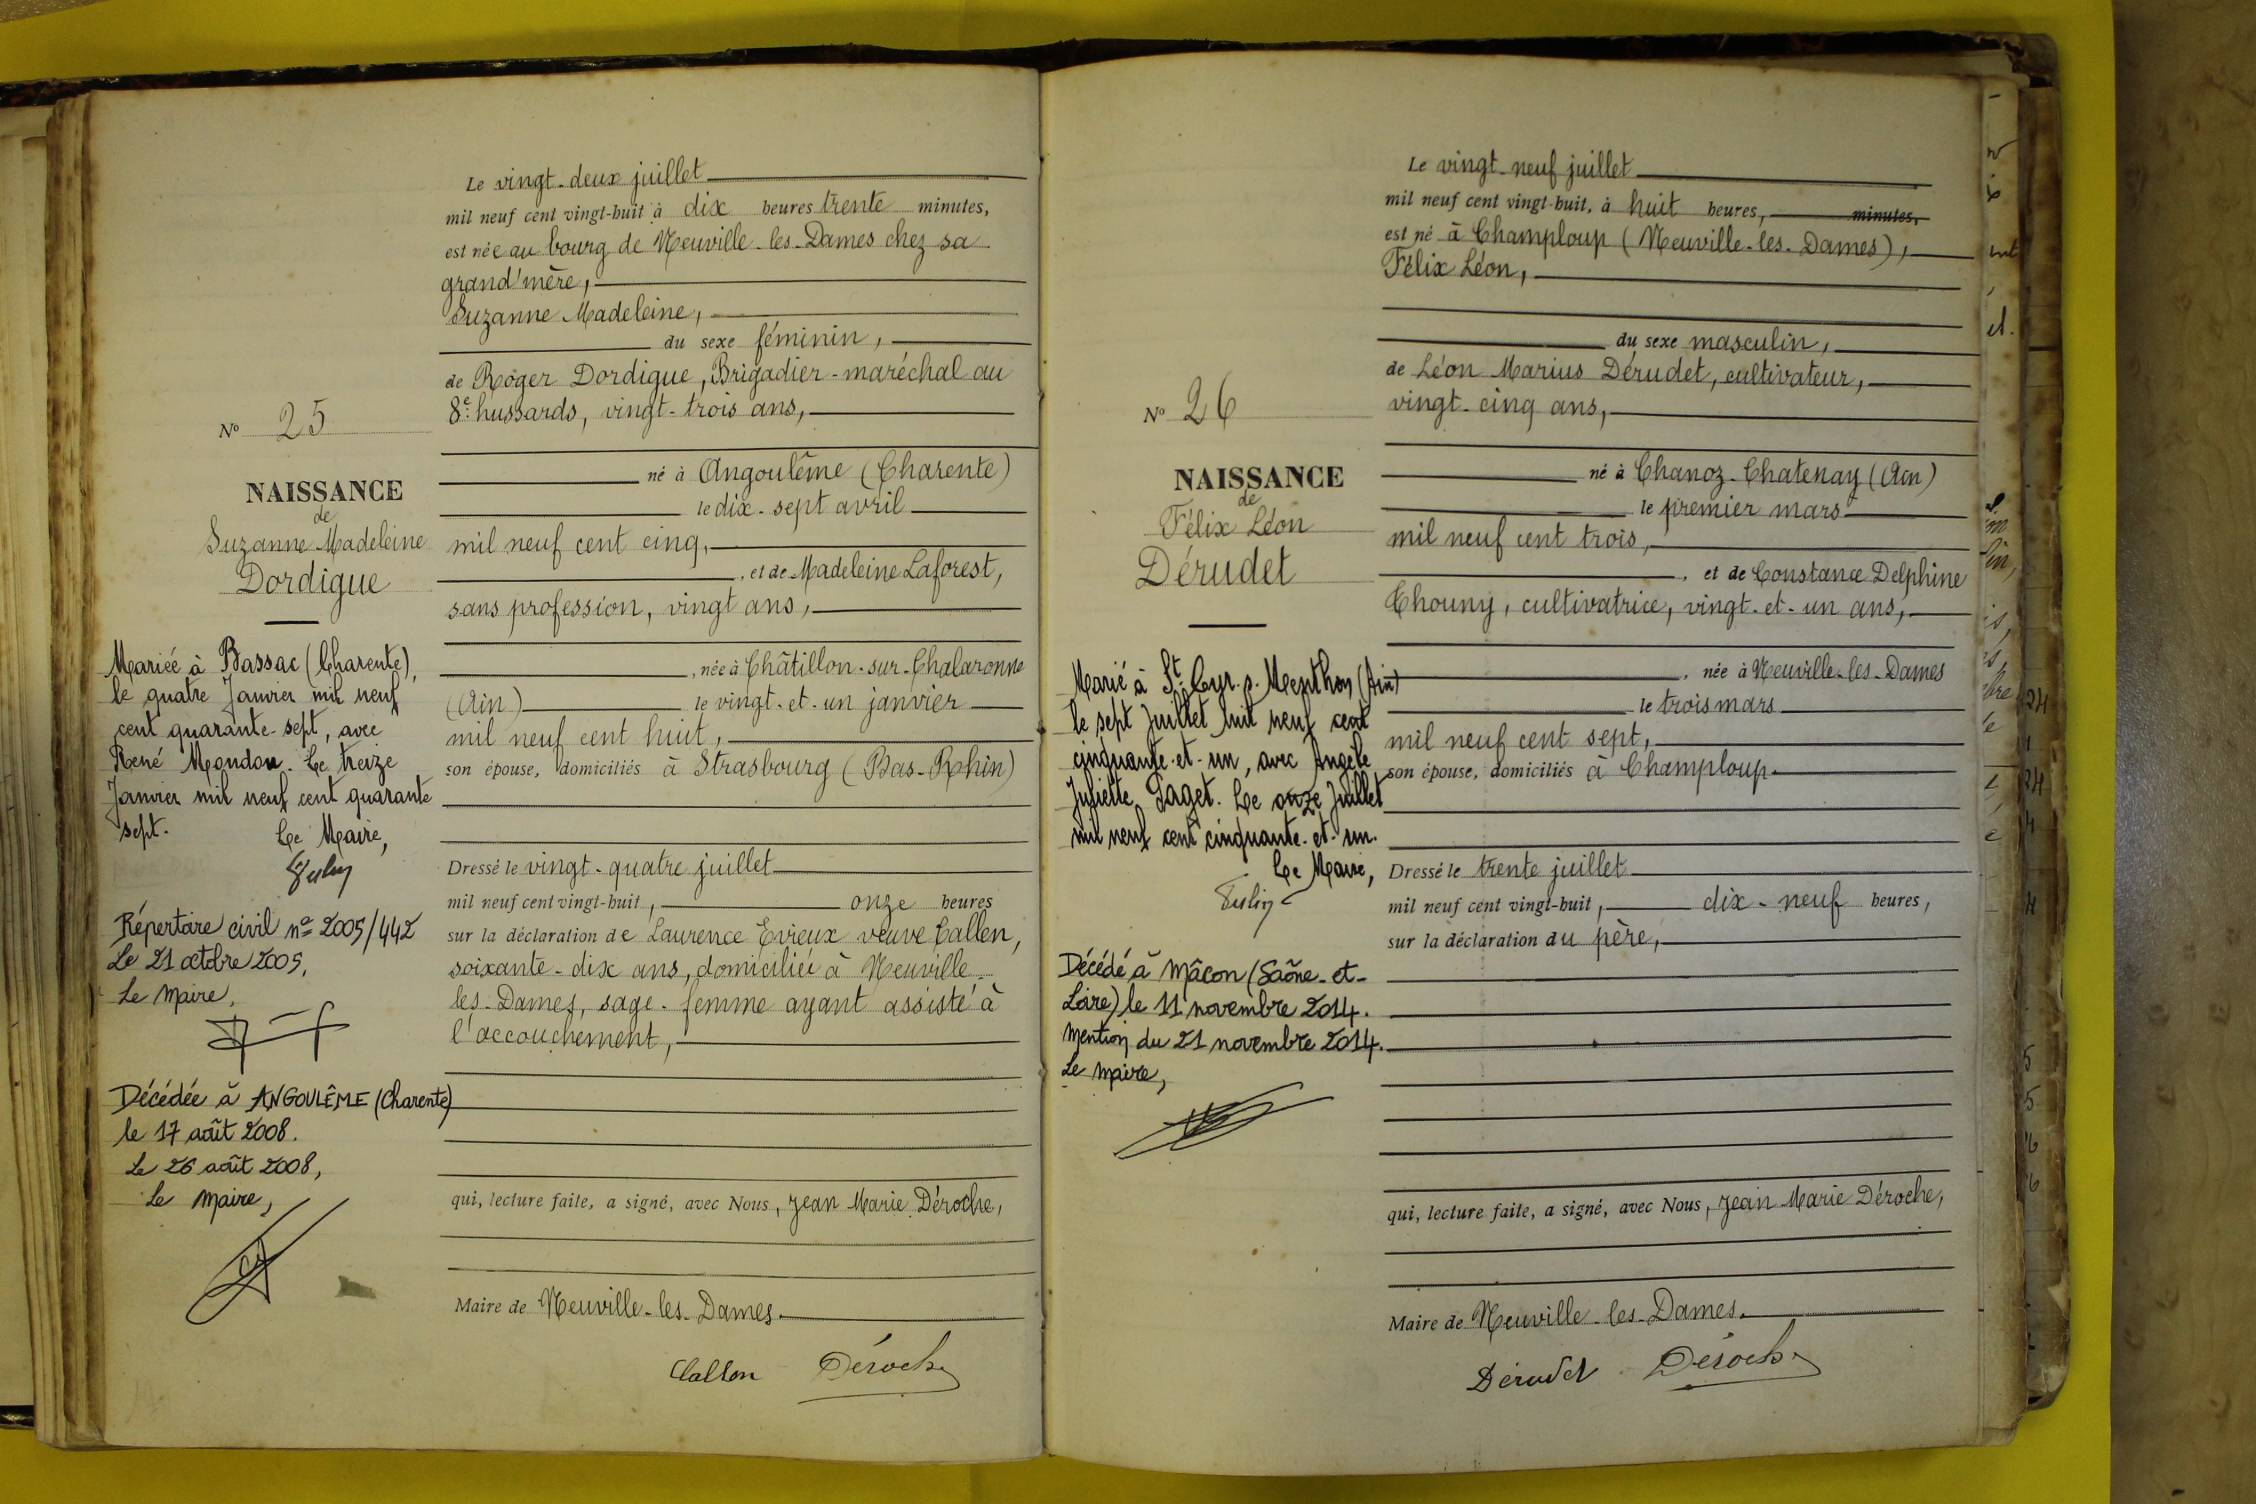 Le vingt-deux juillet
mil neuf cent vingt-huit à dix heures trente minutes,
est née au bourg de Neuville-les-Dames chez sa
grand'mère,
Suzanne Madeleine,
du sexe féminin,
de Roger Dordigue, Brigadier-maréchal au
8e hussards, vingt-trois ans,
né à Angoulême (Charente)
le dix-sept avril
mil neuf cent cinq,
, et de Madeleine Laforest,
sans profession, vingt ans,
, née à Châtillon-sur-Chalaronne
(Ain) le vingt-et-un janvier
mil neuf cent huit,
son épouse, domiciliés à Strasbourg (Bas-Rhin)
Dressé le vingt-quatre juillet
mil neuf cent vingt-huit, onze heures
sur la déclaration de Laurence Evieux veuve Callen,
soixante-dix ans, domiciliée à Neuville-
les-Dames, sage-femme ayant assisté à
l'accouchement,
qui, lecture faite, a signé, avec Nous, Jean Marie Déroche,
Maire de Neuville-les-Dames
Déroche
No 25
NAISSANCE
de
Suzanne Madeleine
Dordigue
Mariée à Bassac (Charente),
le quatre Janvier mil neuf
cent quarante-sept, avec
René Mondon. Le treize
Janvier mil neuf cent quarante
sept. Le Maire,
Répertoire civil no 2005/442
Le 21 octobre 2005,
Le Maire,
Décédée à ANGOULÊME (Charente)
le 17 août 2008.
Le 26 août 2008,
Le Maire,
Le vingt-neuf juillet
mil neuf cent vingt-huit, à huit heures, minutes,
est né à Champloup (Neuville-les-Dames),
Félix Léon,
du sexe masculin,
de Léon Marius Dérudet, cultivateur,
vingt-cinq ans,
né à Chanoz-Chatenay (Ain)
le premier mars
mil neuf cent trois,
, et de Constance Delphine
Chouny, cultivatrice, vingt-et-un ans,
, née à Neuville-les-Dames
le trois mars
mil neuf cent sept,
son épouse, domiciliés à Champloup
Dressé le trente juillet
mil neuf cent vingt-huit, dix-neuf heures,
sur la déclaration du père,
qui, lecture faite, a signé, avec Nous, Jean Marie Déroche,
Maire de Neuville-les-Dames.
Dérudet Déroche
No 26
NAISSANCE
de
Félix Léon
Dérudet
Marié à St Cyr-s-Menthon (Ain)
le sept Juillet mil neuf cent
cinquante-et-un, avec Angèle
Juliette Paget. Le onze Juillet
mil neuf cent cinquante-et-un.
Le Maire,
Décédé à Mâcon (Saône-et-
Loire) le 11 novembre 2014.
Mention du 21 novembre 2014.
Le Maire,